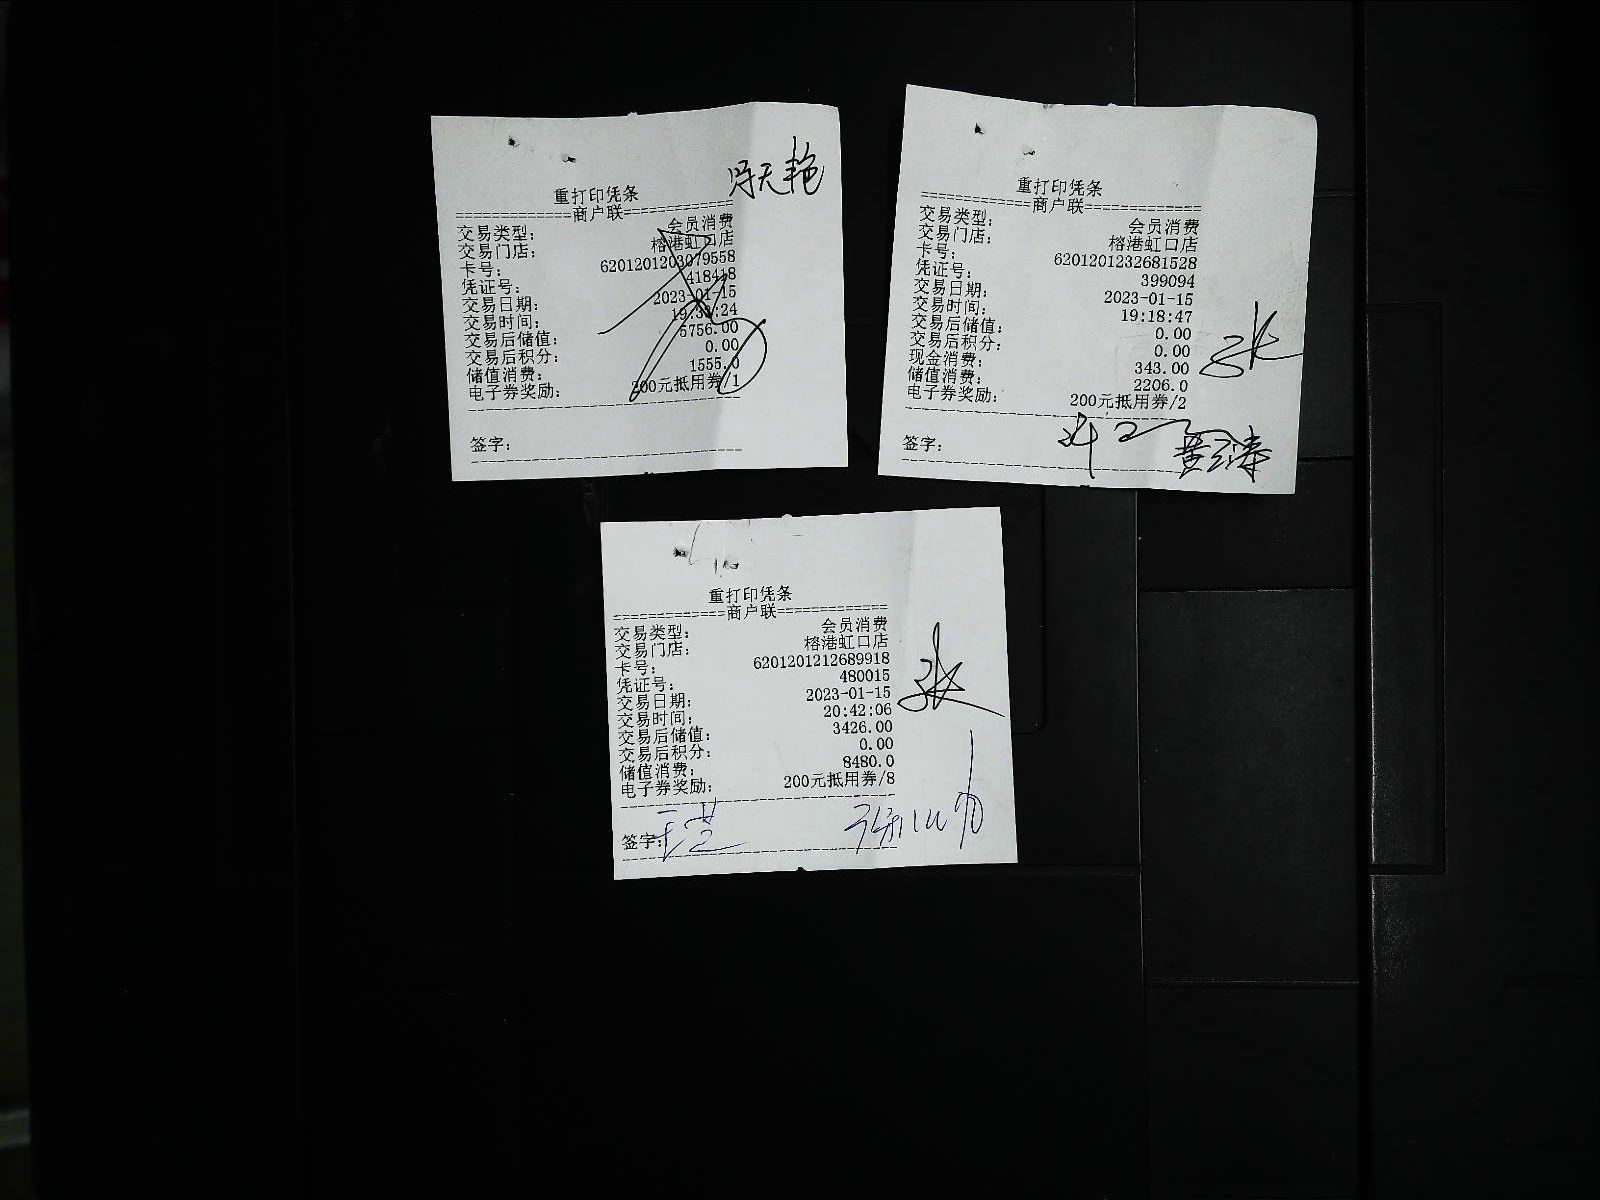 重打印凭条
=============商户联=============
交易类型： 会员消费
交易门店： 榕港虹口店
卡号： 6201201203079558
凭证号： 418418
交易日期： 2023-01-15
交易时间：
交易后储值： 5756.00
交易后积分： 0.00
储值消费： 1555.0
电子券奖励： 200元抵用券/1
签字：
重打印凭条
=============商户联=============
交易类型： 会员消费
交易门店： 榕港虹口店
卡号： 6201201232681528
凭证号： 399094
交易日期： 2023-01-15
交易时间： 19:18:47
交易后储值： 0.00
交易后积分： 0.00
现金消费： 343.00
储值消费： 2206.0
电子券奖励： 200元抵用券/2
张
签字：
重打印凭条
=============商户联=============
交易类型： 会员消费
交易门店： 榕港虹口店
卡号： 6201201212689918
凭证号： 480015
交易日期： 2023-01-15
交易时间： 20:42:06
交易后储值： 3426.00
交易后积分： 0.00
储值消费： 8480.0
电子券奖励： 200元抵用券/8
张
签字：